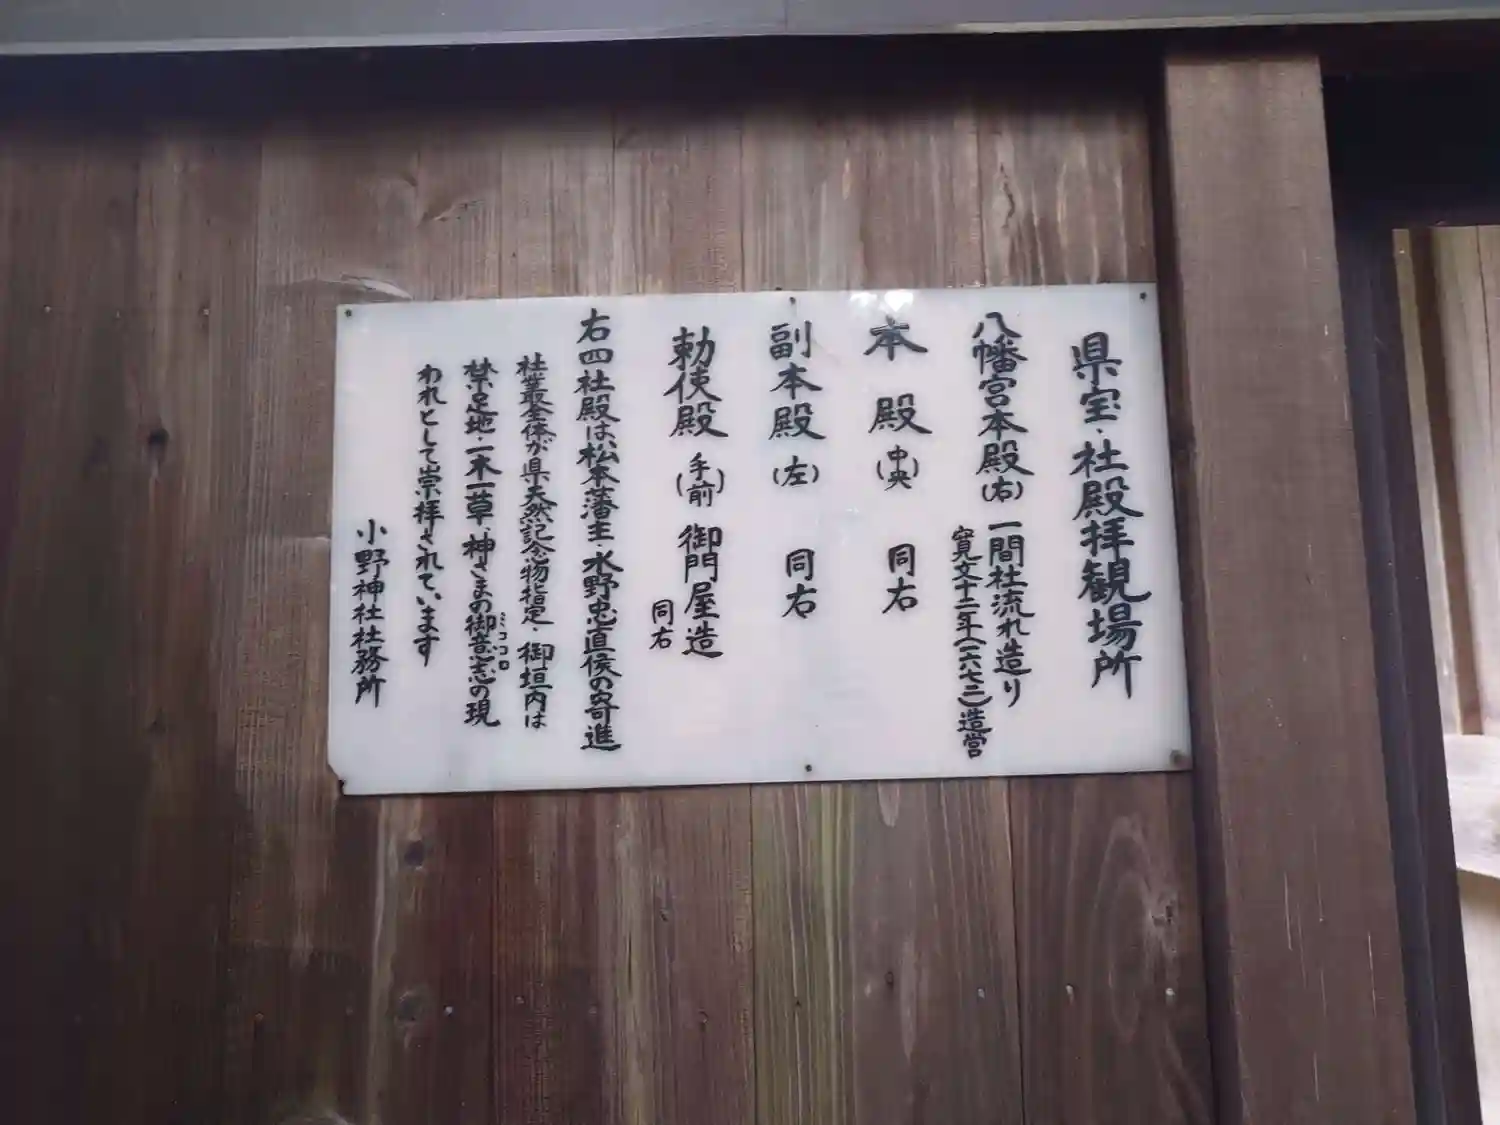 県宝・社殿拝観場所
八幡宮本殿(右) 一間社流れ造り
寛文十二年(一六七二)造営
本殿(中央) 同右
副本殿(左) 同右
勅使殿(手前) 御門屋造
同右
右四社殿は、松本藩主・水野忠直侯の寄進
社叢全体が県天然記念物指定・御垣内は
禁足地・一木一草、神さまの御意志の現
ミココロ
われとして崇拝されています
小野神社社務所